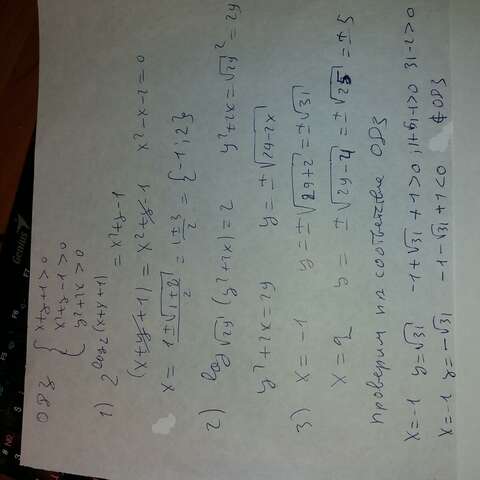 ОДЗ { x+y+1>0
x²+y-1>0
y²+2x>0
1) 2^log₂(x+y+1) = x²+y-1
(x+y+1) = x²+y-1 x²-x-2=0
x = (1±√(1+8))/2 = (1±3)/2 = {-1; 2}
2) log√29 (y²+2x)=2 y²+2x=√29² = 29
y²+2x=29 y=±√(29-2x)
3) x=-1 y=±√(29+2)=±√31
x=2 y=±√(29-4)=±√25=±5
Проверим на соответствие ОДЗ
x=-1 y=√31 -1+√31+1>0; 1+√31-1>0 31-2>0
x=-1 y=-√31 -1-√31+1<0 ∉ ОДЗ
Genius